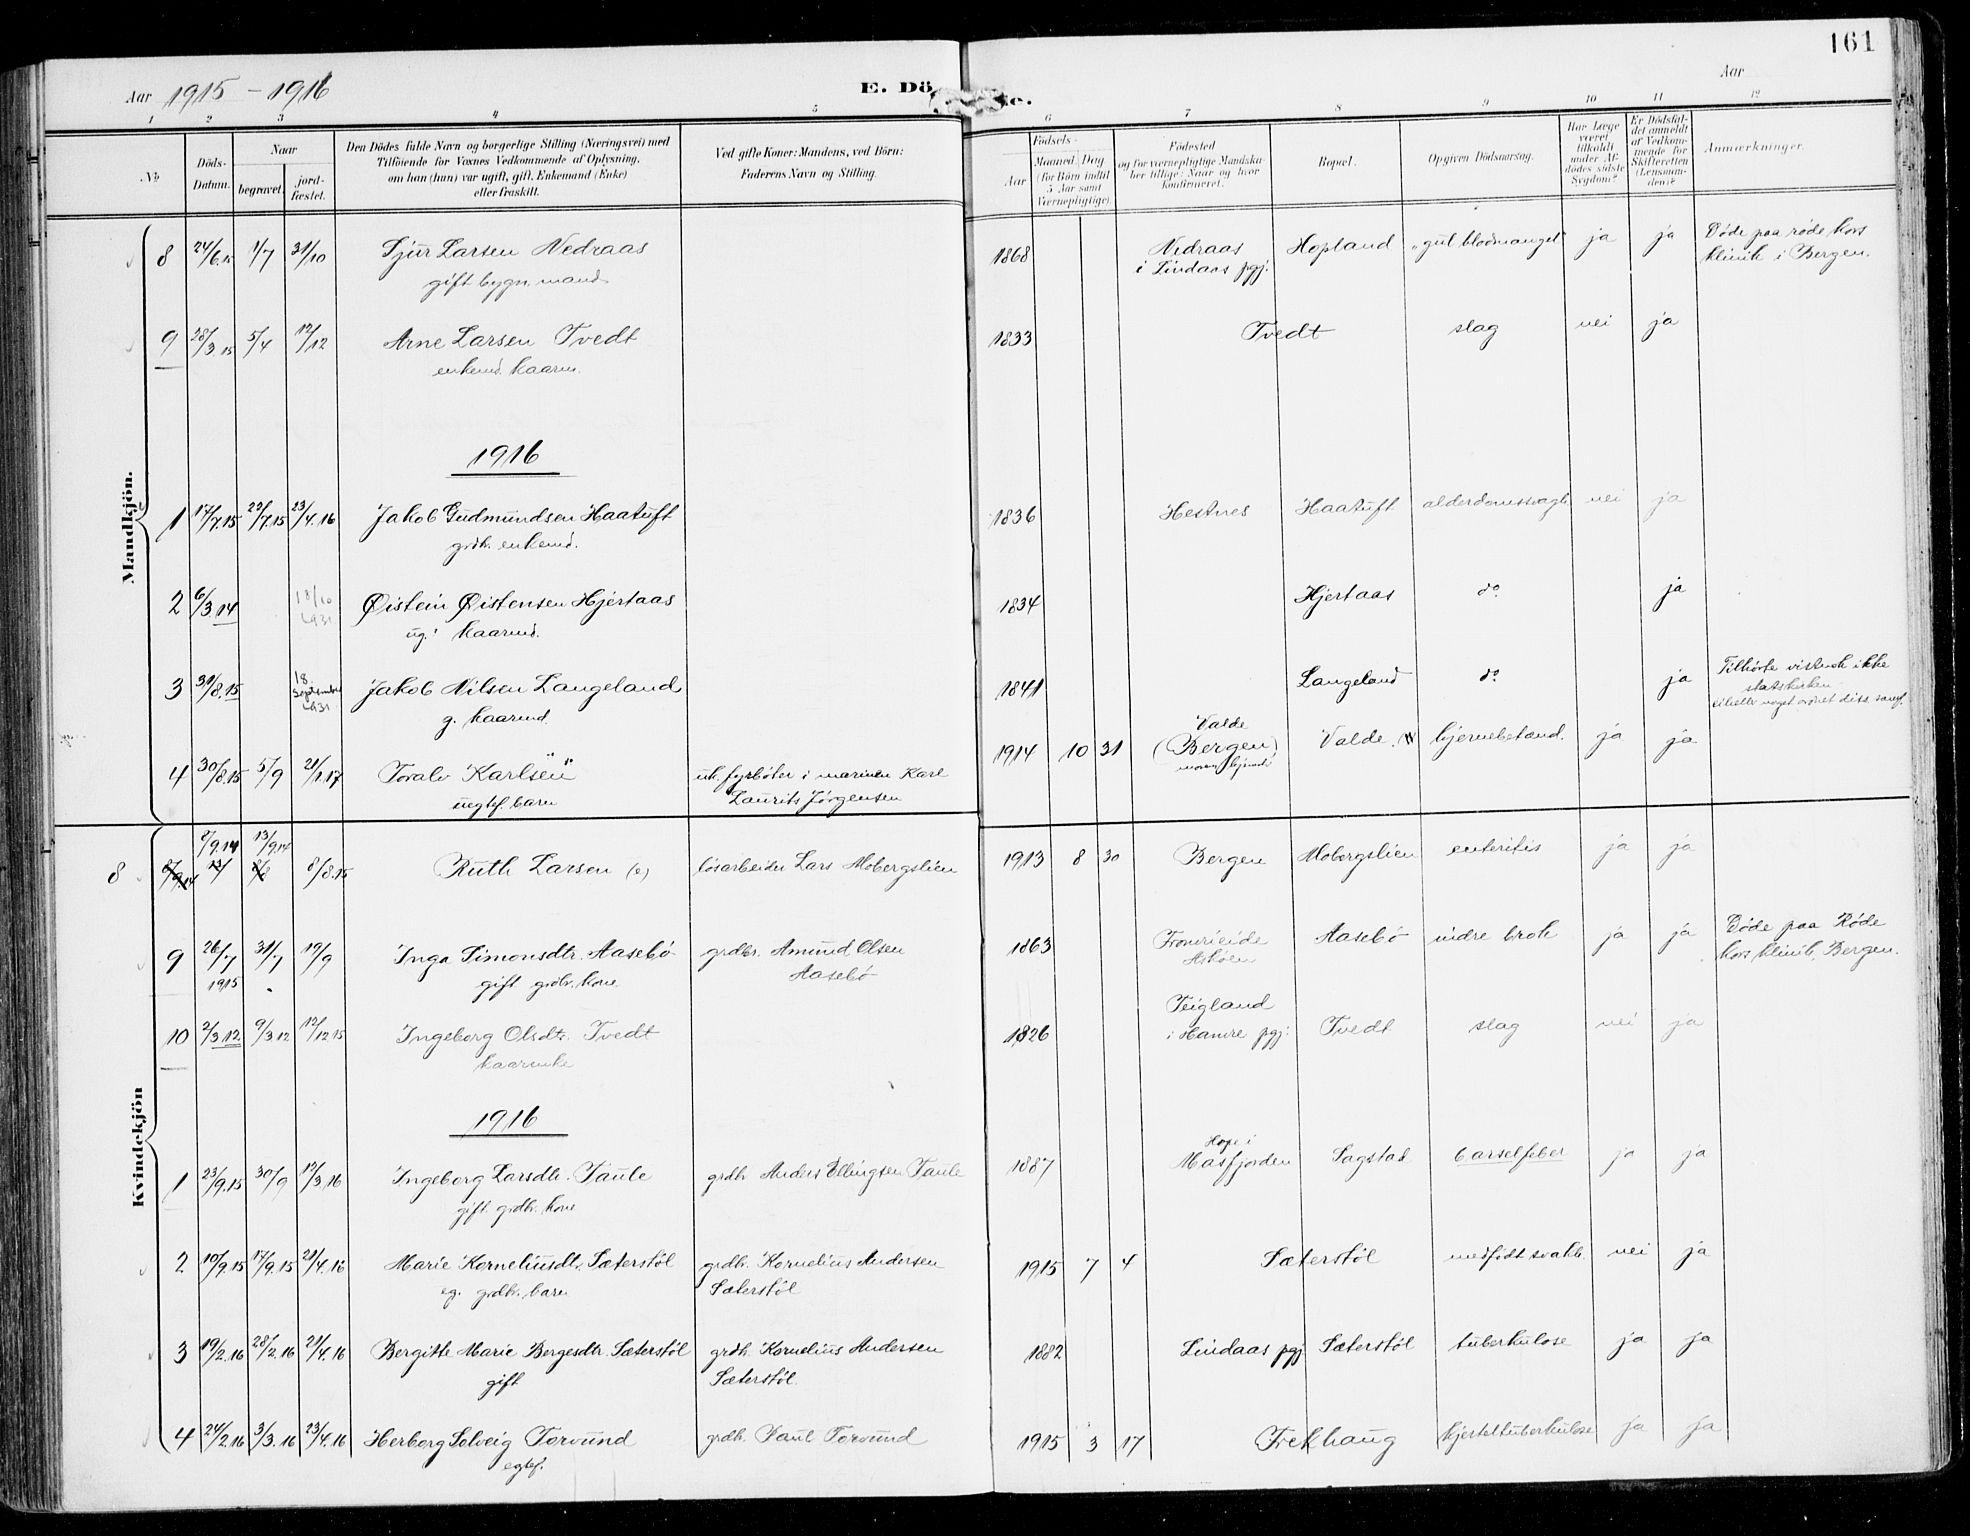 161
Aar 1915 - 1916
E. Dö
te.
Aar
1 2 3 4 5 6 7 8 9 10 11 12
No
Döds-Datum.
Naar
begravet.
jord-fæstet.
Den Dödes fulde Navn og borgerlige Stilling (Næringsvei) med
Tilföiende for Voxnes Vedkommende af Oplysning,
om han (hun) var ugift, gift, Enkemand (Enke)
eller fraskilt.
Ved gifte Koner: Mandens, ved Börn:
Faderens Navn og Stilling.
Födsels-
Aar
Maaned Dag
(for Börn indtil
5 Aar samt
Værnepligtige)
Födested
og for værnepligtige Mandska-
ber tillige: Naar og hvor
konfirmeret.
Bopæl.
Opgiven Dödsaarsag.
Har Læge
været
tilkaldt
under Af-
dödes sidste
Sygdom?
Er Dödsfal-
det anmeldt
af Vedkom-
mende for
Skifteretten
(Lensman-
den)?
Anmærkninger.
Mandkjön.
8 24/6.15 1/7 31/10 Sjur Larsen Nedraas 1868 Nedraas Hopland "gul blodmangel" ja ja Døde paa røde kors
gift bygn. mand i Lindaas pgj. klinik i Bergen.
9 28/3.15 5/4 12/12 Arne Larsen Tvedt 1833 Tvedt slag nei ja
enkemd. kaarm.
1916
1 17/7.15 22/7.15 23/4.16 Jakob Gudmundsen Haatuft 1836 Hestnes Haatuft alderdomssvagh. nei ja
grdbr. enkemd.
2 6/3.14 18/10 1931 Øistein Øistensen Hjertaas 1834 Hjertaas do ja
ug. kaarmd.
3 31/8.15 18. september 1931 Jakob Nilsen Langeland 1841 Langeland do ja Tilhørte vistnok ikke
g. kaarmd. statskirken
4 30/8.15 5/9 21/1.17 Toralv Karlsen 1914 10 31 Valde (Bergen) Valde hjernebetænd. ja ja
uegtef. barn
uk. fyrbøter i marinen Karl
Laurits Jørgensen
Kvindekjön
8 8/9.14 13/9.14 8/8.15 Ruth Larsen (e) løsarbeider Lars Mobergslien 1913 8 30 Bergen Mobergslien enteritis ja ja
9 26/7 1915 31/7 19/9 Inga Simonsdtr. Aasebø grdbr. Amund Olsen 1863 Fromreide Aasebø indre brok ja ja Døde paa Røde
gift grdbr. kone Aasebø Askøen kors klinik, Bergen.
10 2/3.12 9/3.12 12/12.15 Ingeborg Olsdtr. Tvedt 1826 Teigland Tvedt slag nei ja
kaarenke i Hamre pgj.
1916
1 23/9.15 30/9 12/3.16 Ingeborg Larsdtr. Taule grdbr. Anders Ellingsen Taule 1887 Hope i Masfjorden Sagstad barselfeber ja ja
gift grdbr. kone
2 10/9.15 17/9.15 21/4.16 Marie Korneliusdtr. Sæterstøl grdbr. Kornelius Andersen 1915 7 4 Sæterstøl medfødt svakh. nei ja
eg. grdbr. barn Sæterstøl
3 19/2.16 28/2.16 21/4.16 Bergitte Marie Bergesdtr. Sæterstøl grdbr. Kornelius Andersen 1882 Lindaas pgj. Sæterstøl tuberkulose ja ja
gift Sæterstøl
4 24/2.16 3/3.16 23/4.16 Herborg Solveig Torvund grdbr. Paul Torvund 1915 3 17 Frekhaug kjerteltuberkulose ja ja
egtef.